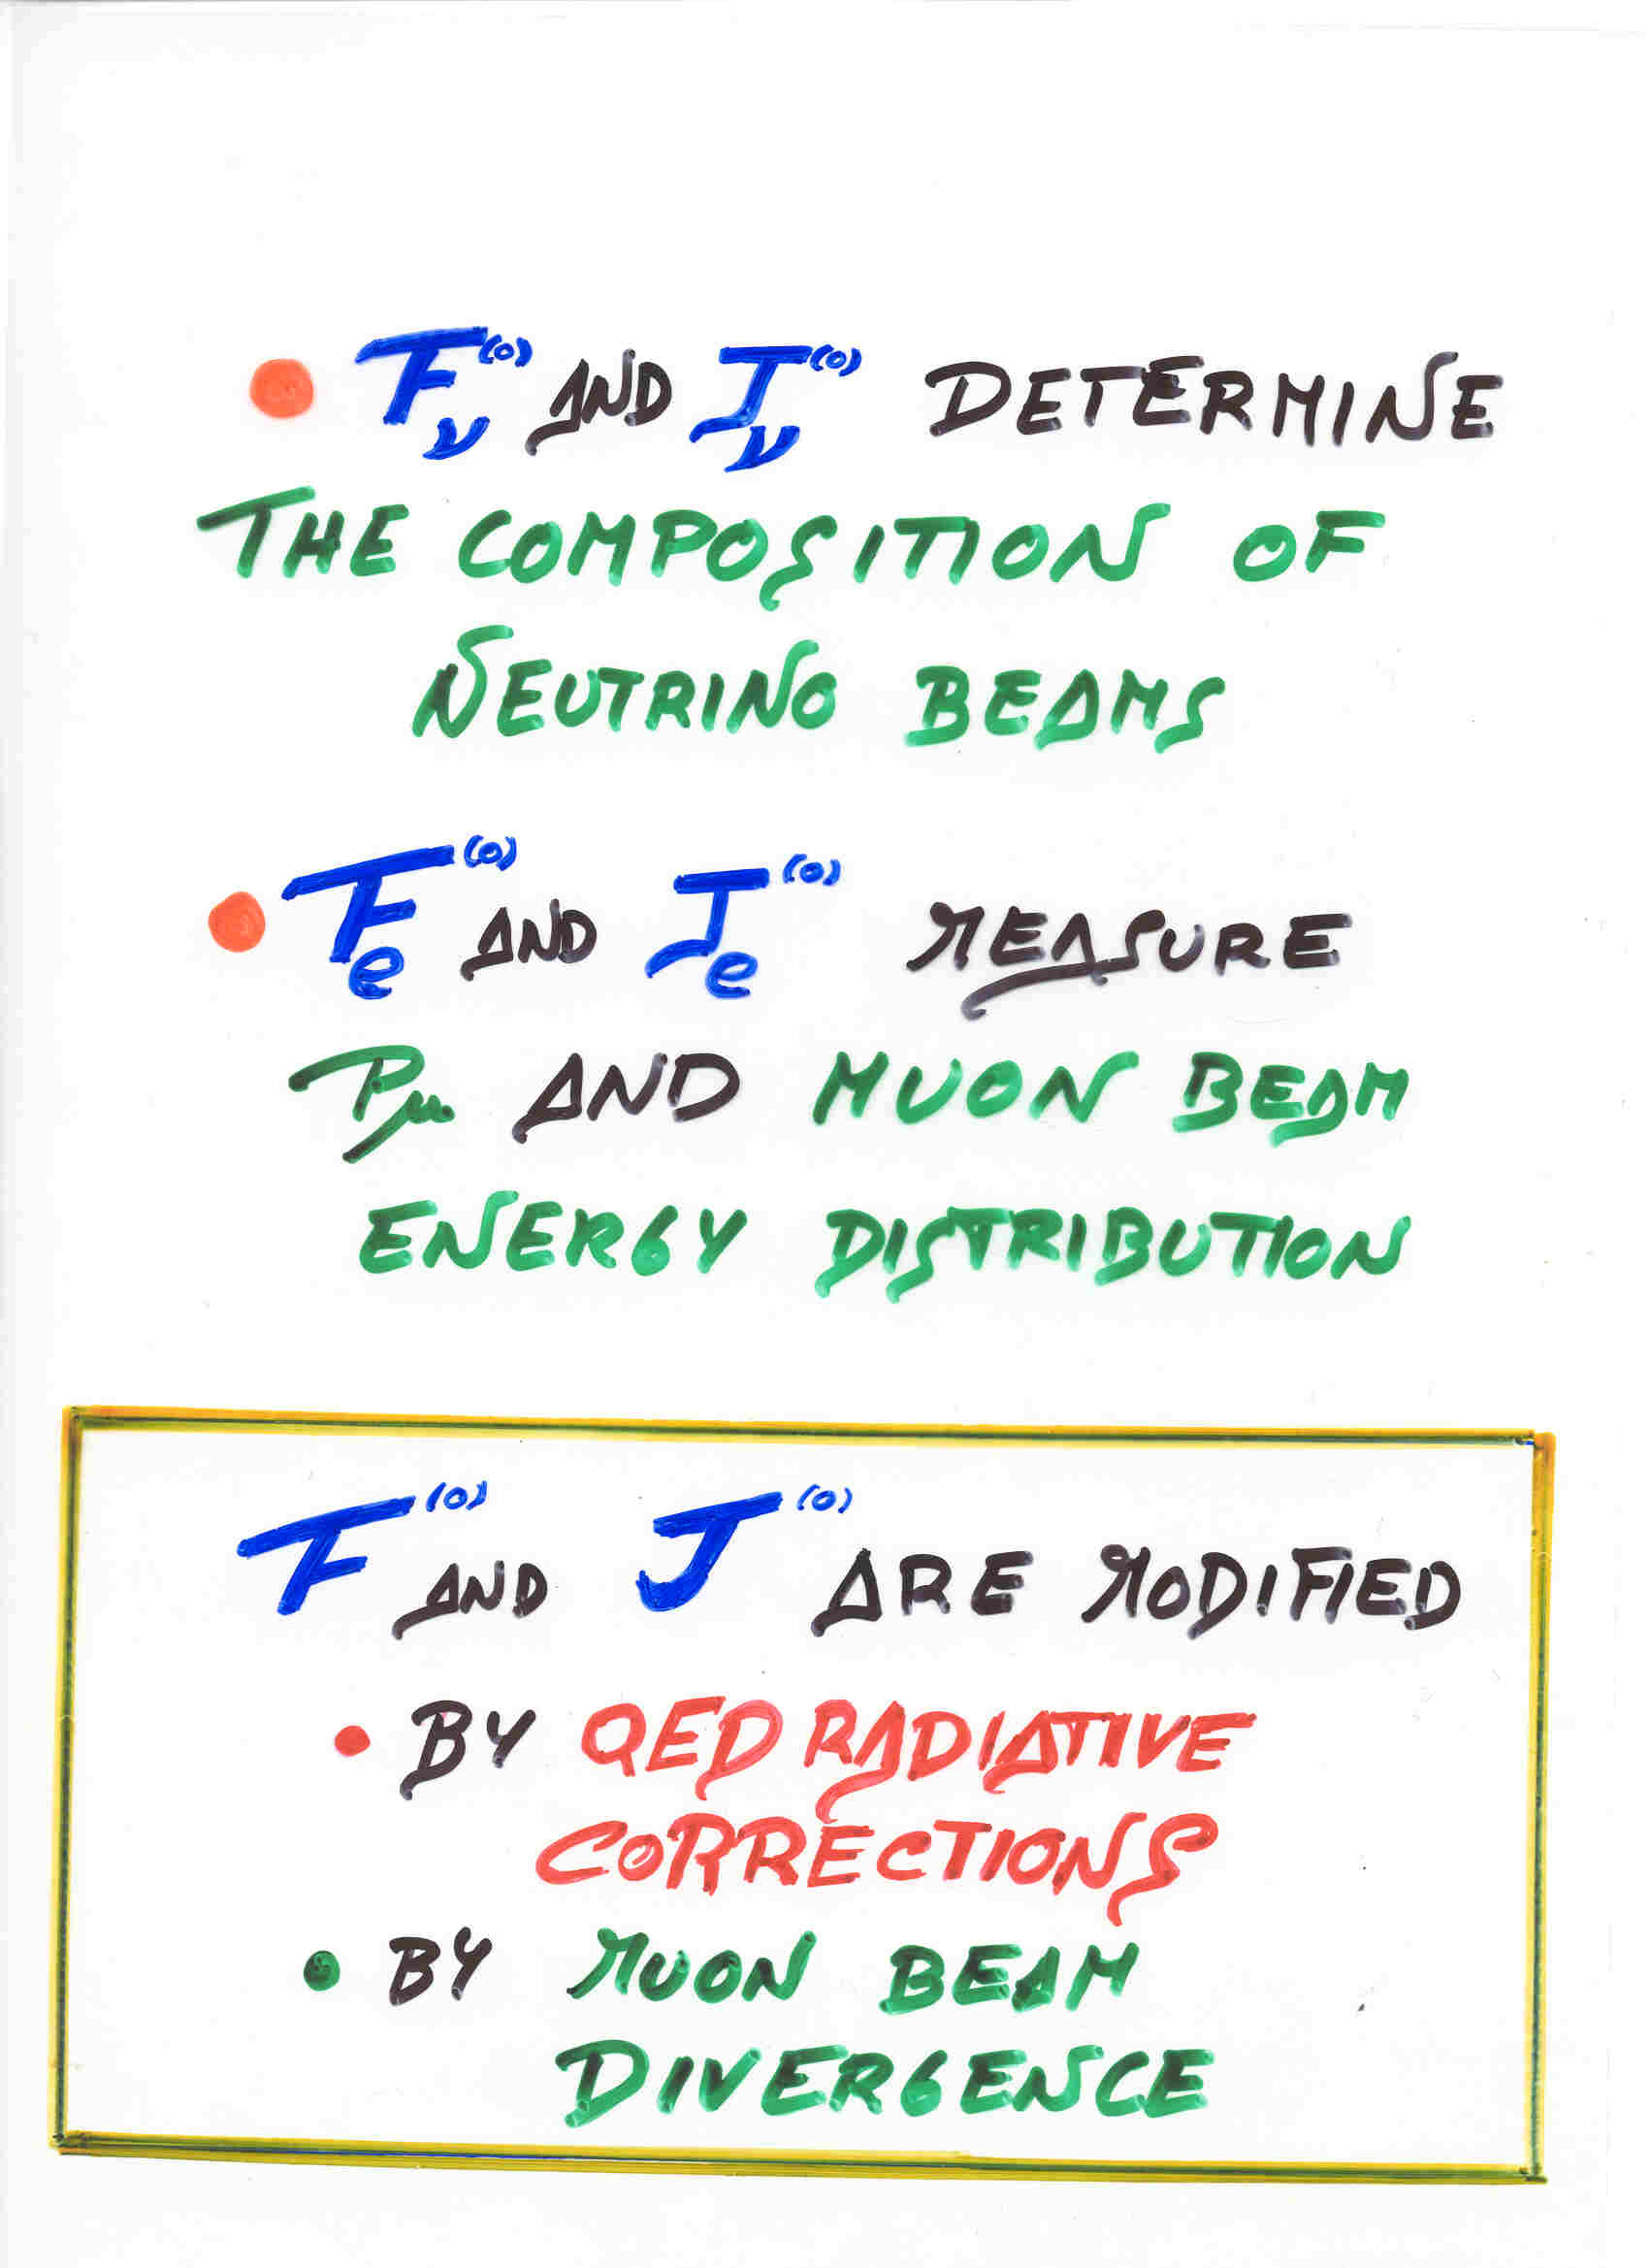 • F_ν^(0) AND J_ν^(0) DETERMINE
THE COMPOSITION OF
NEUTRINO BEAMS
• F_e^(0) AND J_e^(0) MEASURE
P_μ AND MUON BEAM
ENERGY DISTRIBUTION
F^(0) AND J^(0) ARE MODIFIED
• BY QED RADIATIVE
CORRECTIONS
• BY MUON BEAM
DIVERGENCE